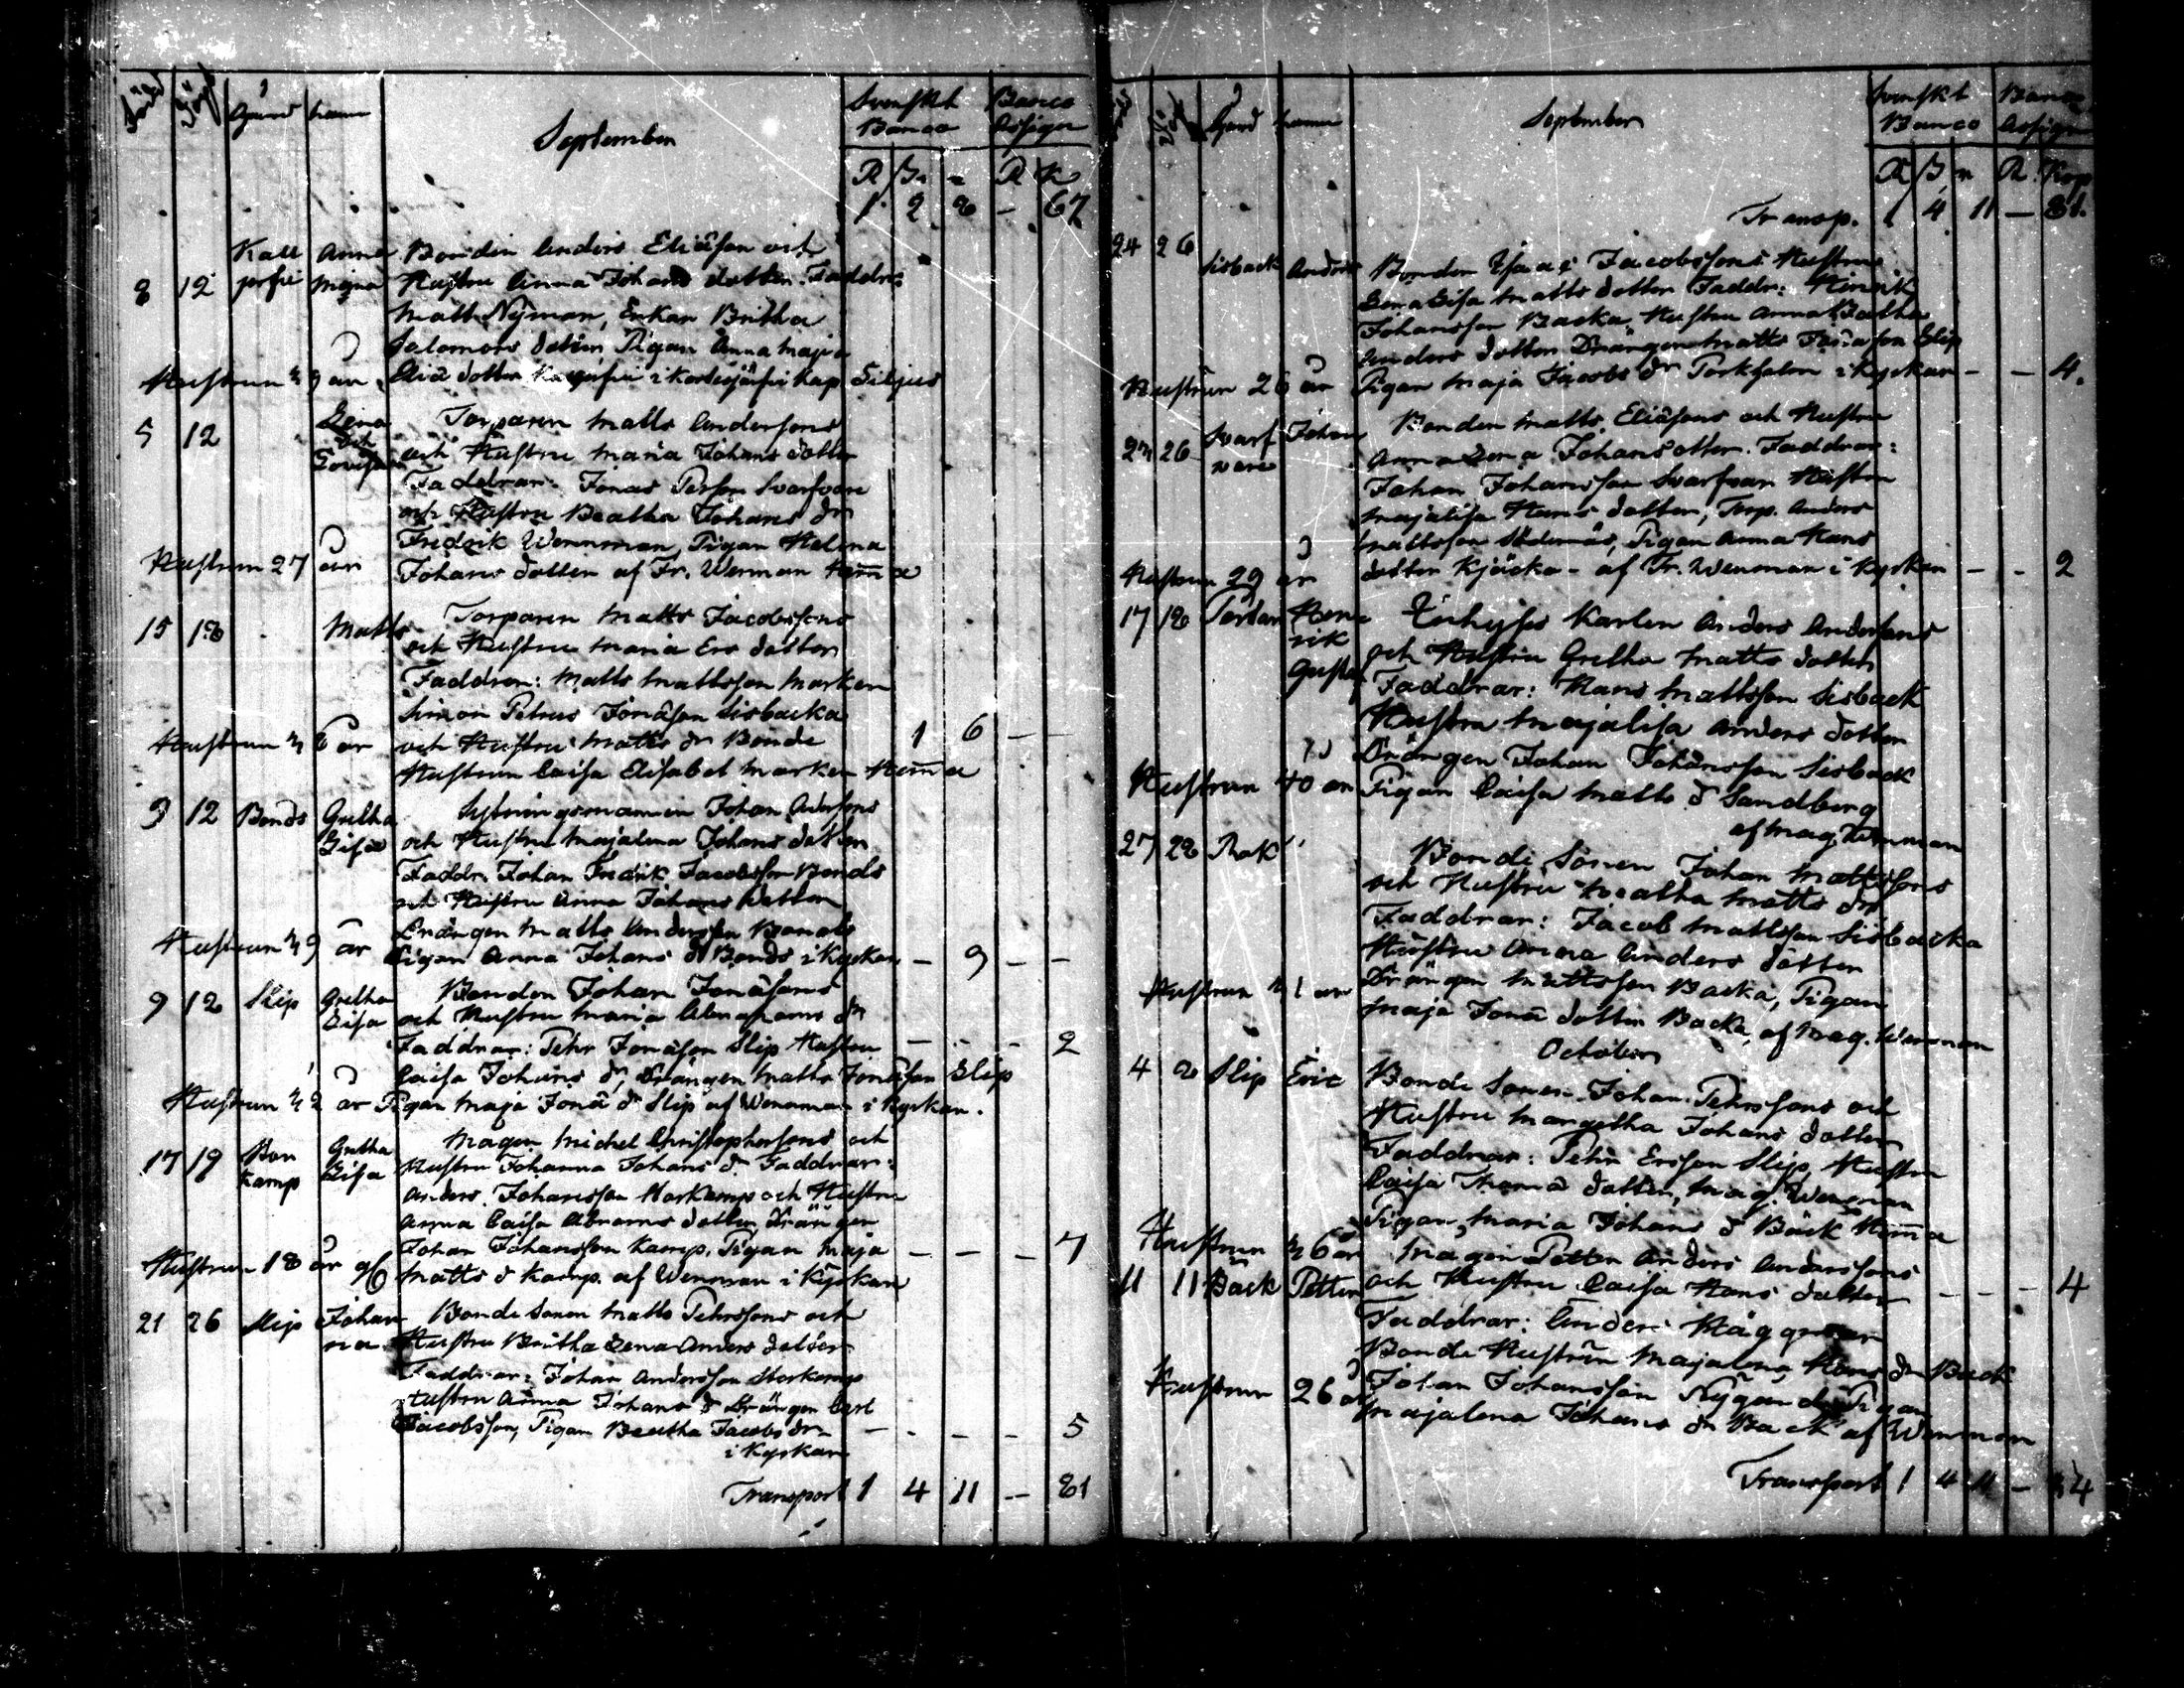 Född Döpt Gård namn September Svenskt Banco Banco Assigna
R S n R K
1 2 8 - 67
Kall Anna Bonden Anders Eliæson och
8 12 Maja Hustru Anna Johans dotter. Faddrar
Matts Nyman, Enkan Britha
Salomons dotter Pigan Anna Maja
Hustrun år Eliæ dotter Kap.
5 12 Lena Torparen Matts Andersons
och Lovisa och Hustru Maria Johans dotter
Faddrar: Jonas Person Svarfvare
och Hustru Beatha Johans dr
Fredrik Wennman, Pigan Helena
Hustrun 27 år Johans dotter af Fr. Wenman hemma
15 18 Matts Torparen Matts Jacobssons
och Hustru Maria Ers dotter
Faddrar: Matts Mattsson Marken
Simon Petrus Jonæson Sisbacka
Hustrun år och Hustru Matts dr Bonde 1 6 - -
Hustrun Caisa Elisabet Marken Hemma
9 12 Bonds Gretha Johan Andersons
Lisa och Hustru Majalena Johans dotter
Faddr. Johan Fredrik Jacobsson Bonds
och Hustru Anna Johans dotter
Drängen Matts Andersson Bonds
Hustrun 39 år Pigan Anna Johans d Bonds i Kyrkan - 9 - -
9 12 Slip Gretha Bonden Johan Jonæsons
Lisa och Hustru Maria Abrahams dr
Faddrar: Pehr Jonæson Slip Hustru - - - 2
Caisa Johans dr, Drängen Matts Jonæson Slip
Hustrun 32 år Pigan Maja Jonæ dr Slip af Wennman i Kyrkan.
17 19 Stor Gretha Magen Michel Christophersons och
kamp Lisa Hustru Johanna Johans dr Faddrar:
Anders Johansson Storkamp och Hustru
Anna Caisa Abrams dotter Drängen
Johan Johansson Kamp, Pigan Maja - - - 7
Hustrun 18 år Matts d Kamp. af Wennman i Kyrkan
21 26 Slip Johan Bonde Sonen Matts Pehrssons och
na Hustru Britha Lena Anders dotter
Faddrar: Johan Andersson Storkamp
Hustru Anna Johans dr Drängen Carl
Jacobsson, Pigan Beatha Jacobs dr - - - - 5
i Kyrkan
Transport 1 4 11 - 81
Född Döpt Gård namn September Svenskt Banco Banco Assigna
R S n R Kop
Transp. 1 4 11 - 81.
24 26 Sisback Anders Bonden Isaac Jacobssons Hustru
Lena Lisa Matts dotter Faddr: Henrik
Johansson Backa, Hustru Anna Beatha
Anders dotter Drängen Matts Slip
Hustrun 26 år Pigan Maja Jacobs dr i Kyrkan - - 4.
23 26 Svarf Johan Bonden Matts Eliæsons och Hustru
vare Anna Lena Johansdotter. Faddrar:
Johan Johansson Svarfvar Hustru
Majalisa Hans dotter, Torp. Anders
Mattsson Södernäs, Pigan Anna Hans
Hustrun 29 år dotter Kjäcko - af Fr. Wenman i Kyrkan - - 2
17 18 Jordan Hen Inhyses Karlen Anders Anderssons
rik och Hustru Gretha Matts dotter
Gustaf Faddrar: Hans Mattsson Sisback
Hustru Majalisa Anders dotter
Drängen Johan Johansson Sisback
Hustrun 40 år Pigan Caisa Matts d Sandberg
af Mag. Wennman
27 28 Rak Bonde Sonen Johan Mattssons
och Hustru Beatha Matts dr
Faddrar: Jacob Mattsson Sisbacka
Hustru Anna Anders dotter
Hustrun 31 år Drängen Mattsson Backa, Pigan
Maja Jonæ dotter Backa, af Mag. Wennman
October
4 Slip Eric Bonde Sonen Johan Pehrssons och
Hustru Margetha Johans dotter
Faddrar: Pehr Ersson Slip, Hustru
Caisa Thomæ dotter, Mag. Wenman
Pigan Maria Johans d Bäck Hemma
Hustrun 36 år Magen Petter Anders Anderssons
11 11 Bäck Petter och Hustru Caisa Hans dotter - - - 4
Faddrar: Anders Häggman
Bonde Hustrun Majalena Hans dr Back
Hustrun 26 år Johan Johansson Nygård Pigan
Majalena Johans dr Back af Wenman
Transport 1 4 11 - 34